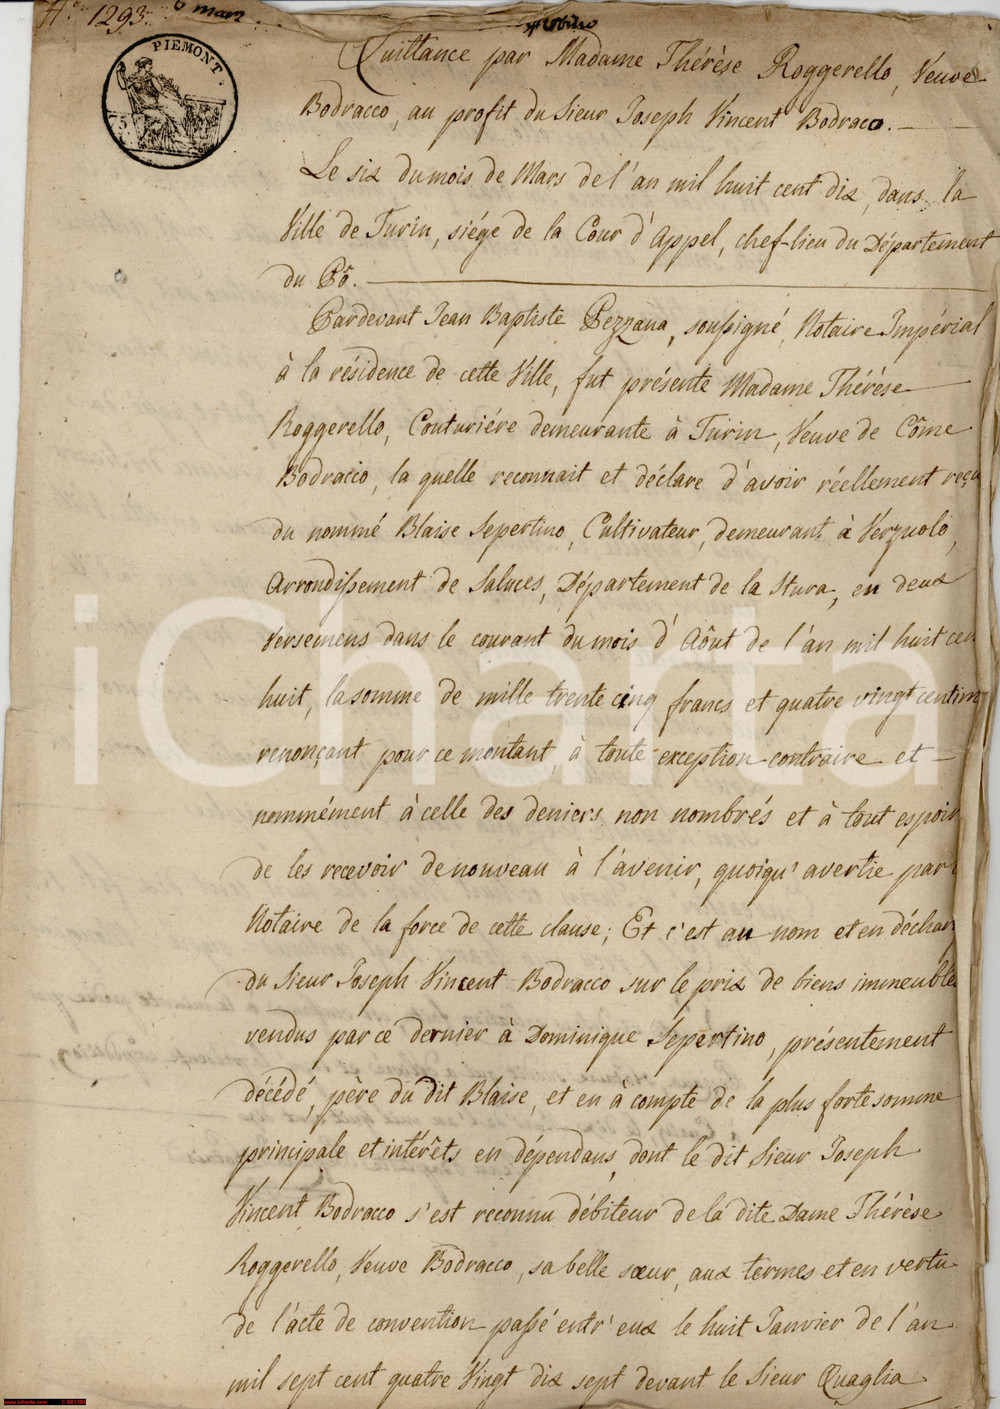 N.º 1293. 6 mars
PIEMONT.
75
Quittance par Madame Thérèse Roggerello, Veuve
Bodracco, au profit du Sieur Joseph Vincent Bodracco.
Le six du mois de Mars de l'an mil huit cent dix, dans la
Ville de Turin, siége de la Cour d'Appel, chef-lieu du Département
du Pô.
Pardevant Jean Baptiste Pezzana, soussigné, Notaire Impérial
à la résidence de cette Ville, fut présente Madame Thérèse
Roggerello, Couturiére demeurante à Turin, Veuve de Côme
Bodracco, la quelle reconnait et déclare d'avoir réellement reçu
du nommé Blaise Sepertino, Cultivateur, demeurant à Verzuolo,
Arrondissement de Saluces, Département de la Stura, en deux
versemens dans le courant du mois d'Aôut de l'an mil huit cen
huit, la somme de mille trente cinq francs et quatre vingt centim
renonçant pour ce montant, à toute exception contraire et
nommément à celle des deniers non nombrés et à tout espoir
de les recevoir de nouveau à l'avenir, quoiqu'avertie par
Notaire de la force de cette clause; Et c'est au nom et en déchar
du Sieur Joseph Vincent Bodracco sur le prix de biens immeuble
vendus par ce dernier à Dominique Sepertino, présentement
décédé, père du dit Blaise, et en à compte de la plus forte somme
principale et intérêts en dépendans, dont le dit Sieur Joseph
Vincent Bodracco s'est reconnu débiteur de la dite Dame Thérèse
Roggerello, Veuve Bodracco, sa belle sœur, aux termes et en vertu
de l'acte de convention passé entr'eux le huit Janvier de l'an
mil sept cent quatre Vingt dix sept devant le Sieur Quaglia
iCharta